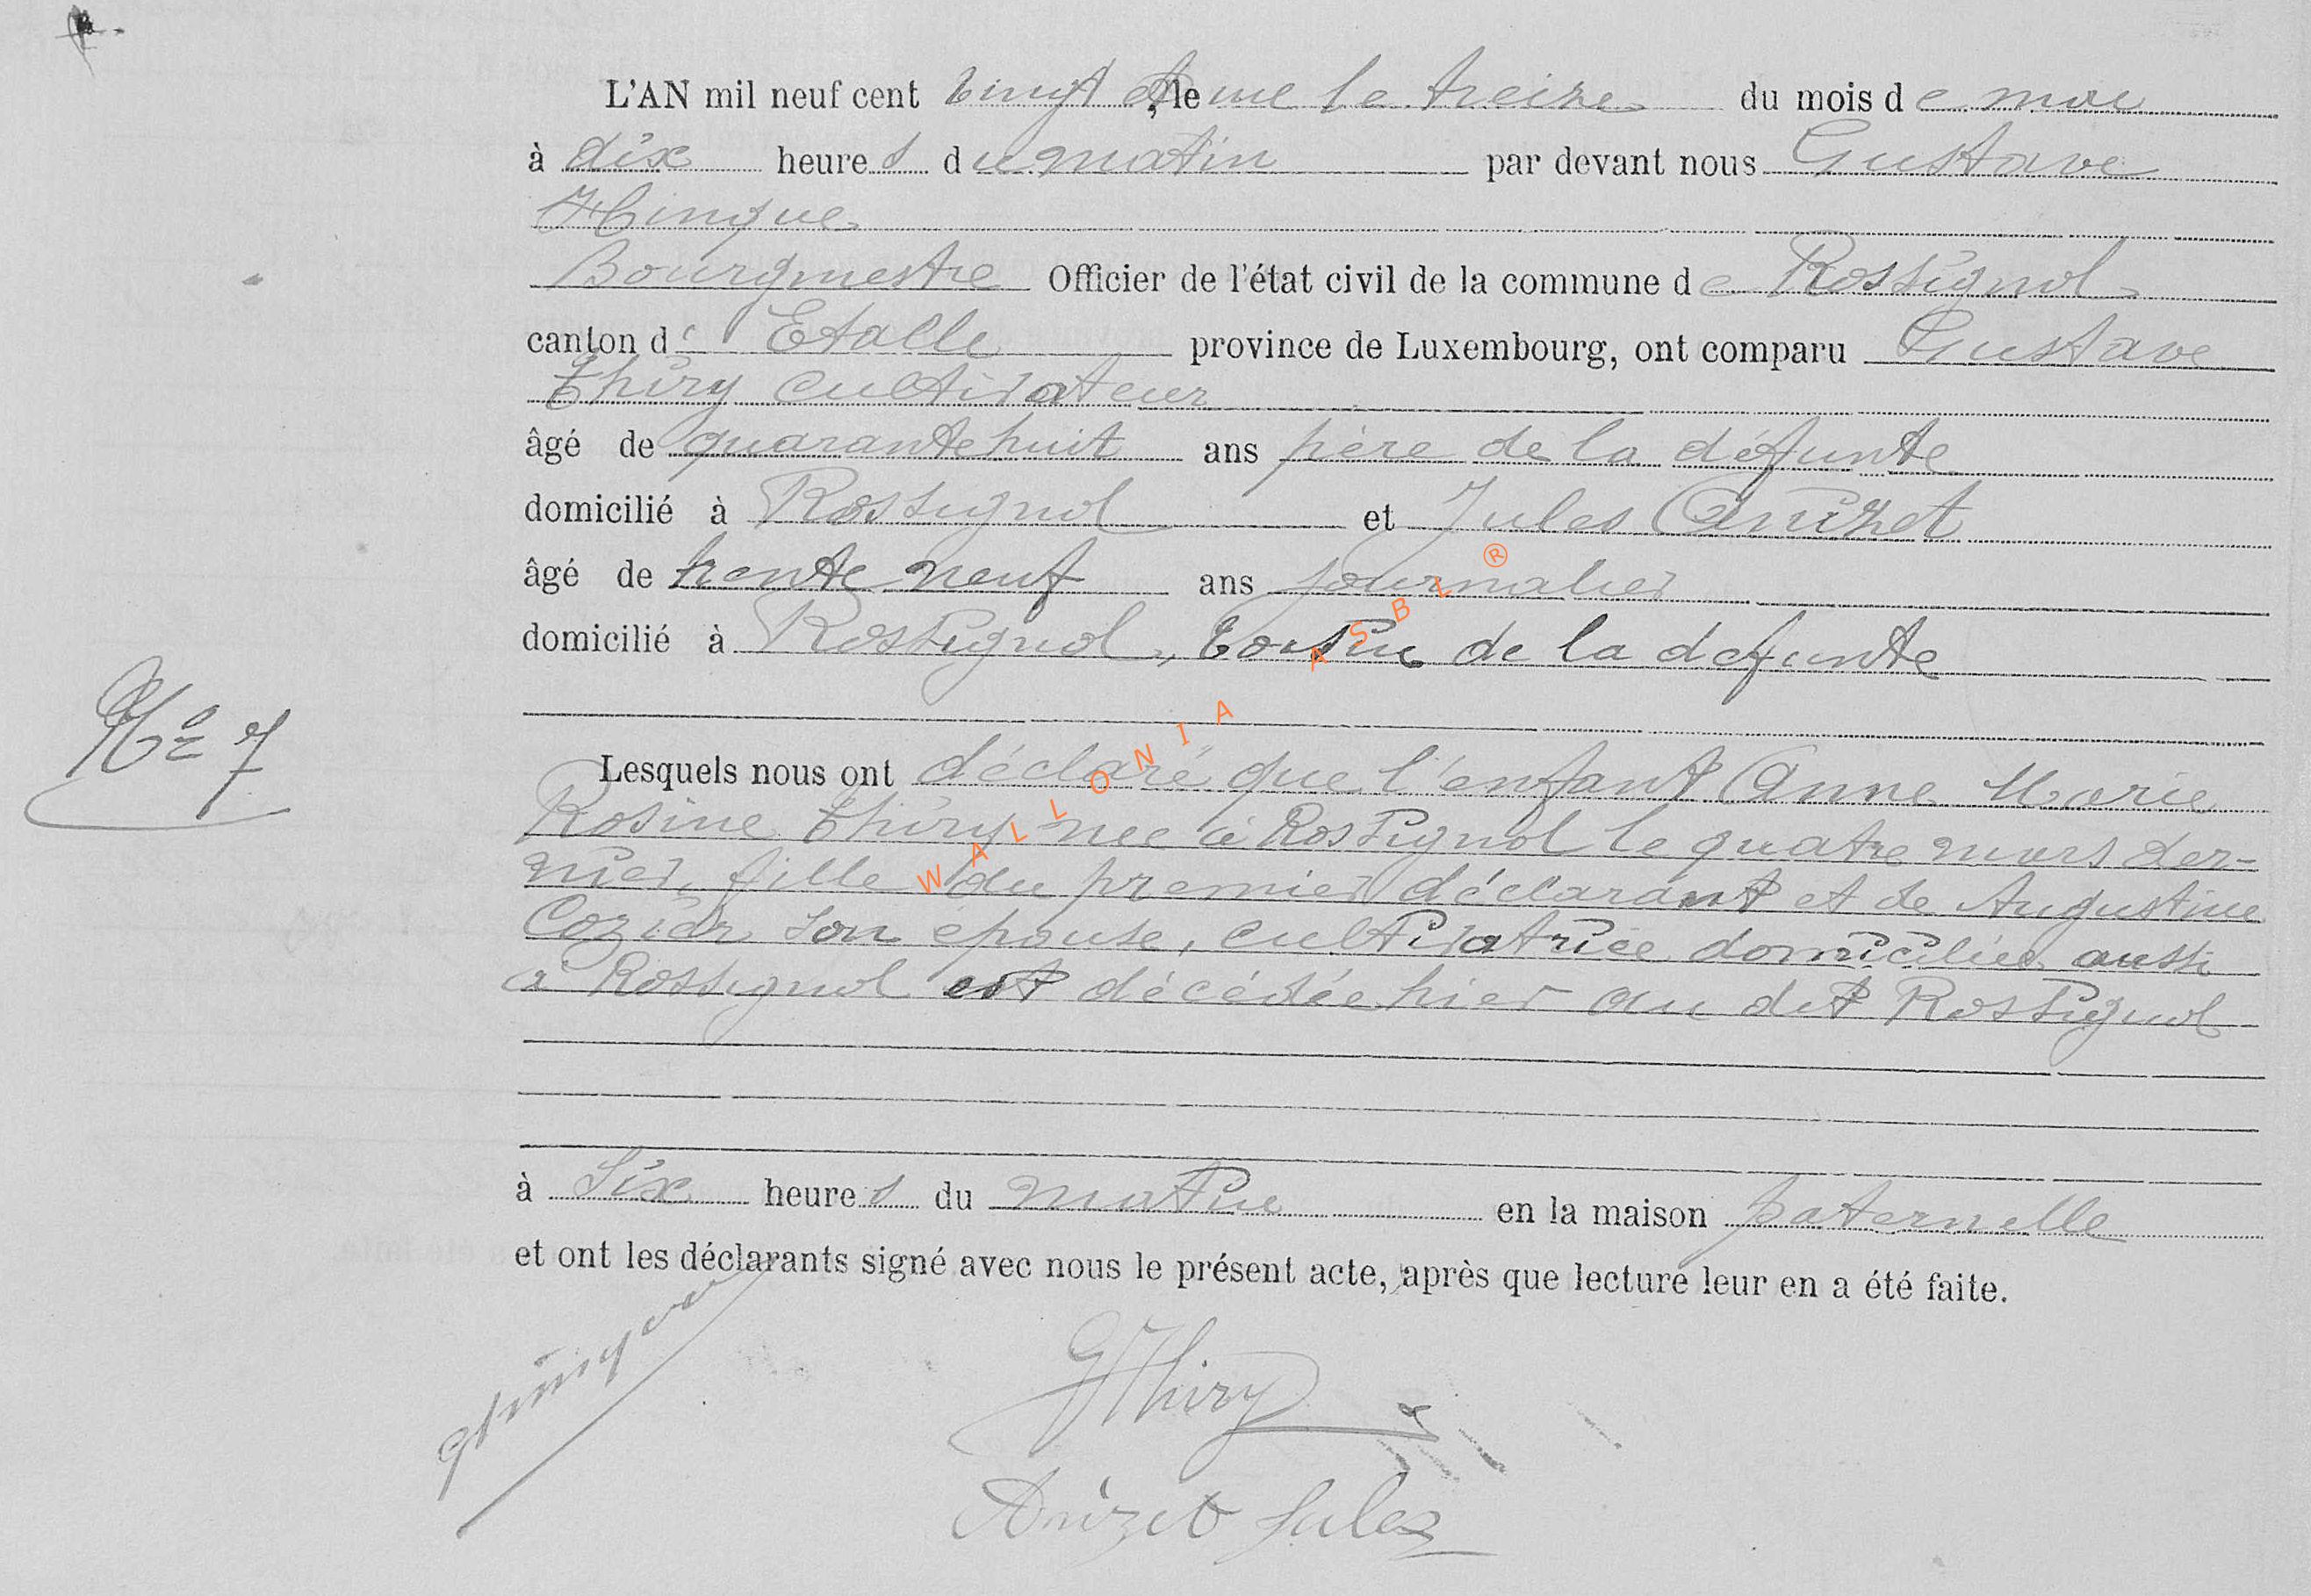 L'AN mil neuf cent vingt et un, le le treize du mois de mai
à dix heures du matin par devant nous Gustave
Hinque
Bourgmestre Officier de l'état civil de la commune de Rossignol
canton d'Etalle province de Luxembourg, ont comparu Gustave
Thiry cultivateur
âgé de quarante huit ans père de la défunte
domicilié à Rossignol et Jules Anizet
âgé de trente neuf ans journalier
domicilié à Rossignol, Cousin de la defunte
No 7
Lesquels nous ont déclaré que l'enfant Anne Marie
Rosine Thiry née à Rossignol le quatre mars der-
nier, fille du premier déclarant et de Augustine
Cozier son épouse, cultivatrice domiciliée aussi
à Rossignol est décédée hier au dit Rossignol
à six heures du matin en la maison paternelle
et ont les déclarants signé avec nous le présent acte, après que lecture leur en a été faite.
GHinque
GThiry
Anizet Jules
WALLONIA ASBL ®